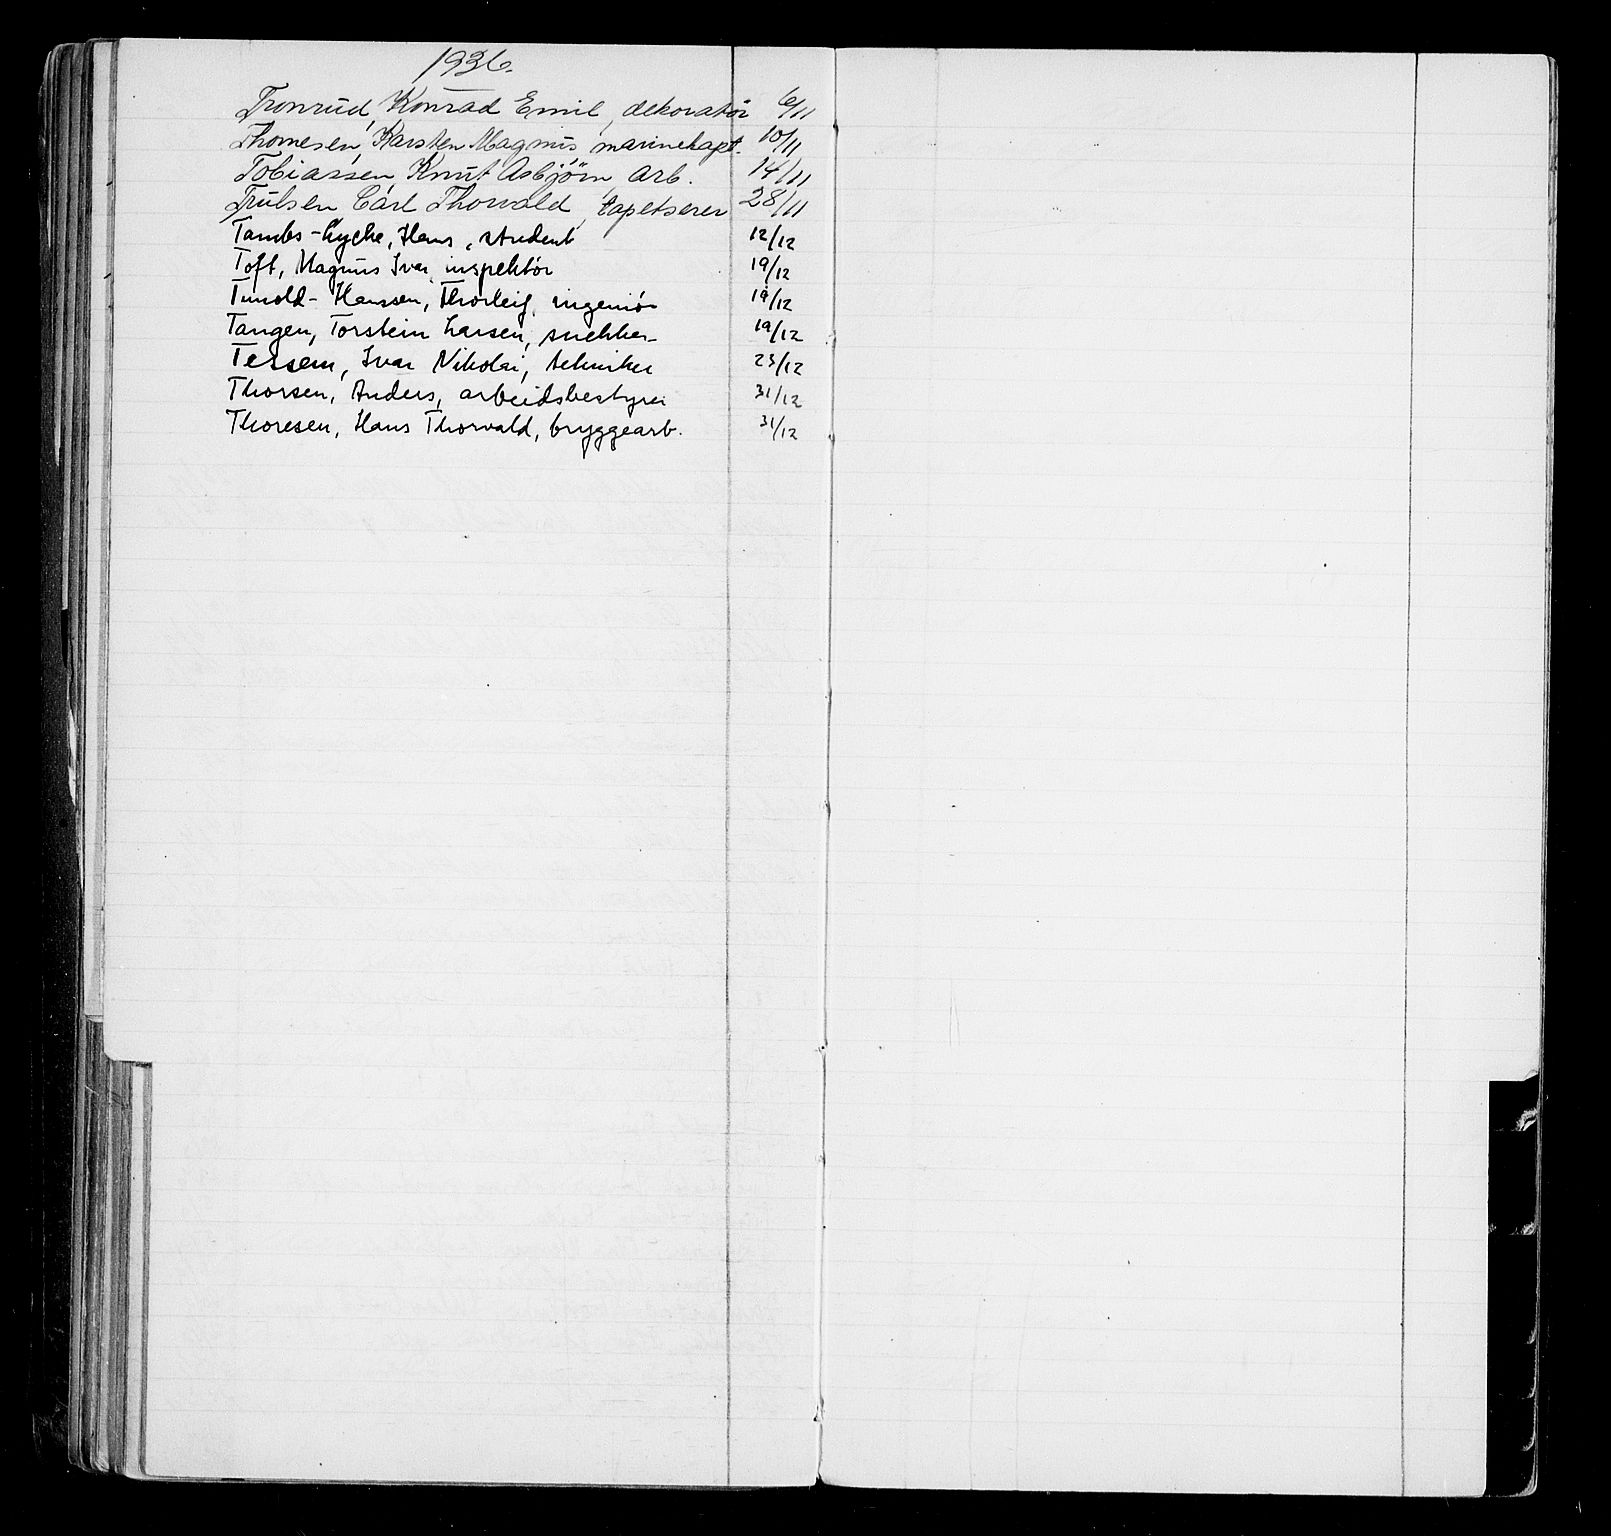 1936.
Tronrud, Konrad Emil, dekoratør 6/11
Thomesen, Karsten Magnus marinekapt. 10/11
Tobiassen, Knut Asbjörn arb. 14/11
Trulsen Carl Thorvald, tapetserer 28/11
Tambs-Lyche, Hans, student 12/12
Toft, Magnus Ivar, inspektør 19/12
Hanssen, Thorleif, ingeniør 19/12
Tangen, Torstein Larsen, snekker 19/12
Tessem, Ivar Nikolai, tekniker 23/12
Thorsen, Anders, arbeidsbestyrer 31/12
Thoresen, Hans Thorvald, bryggearb. 31/12